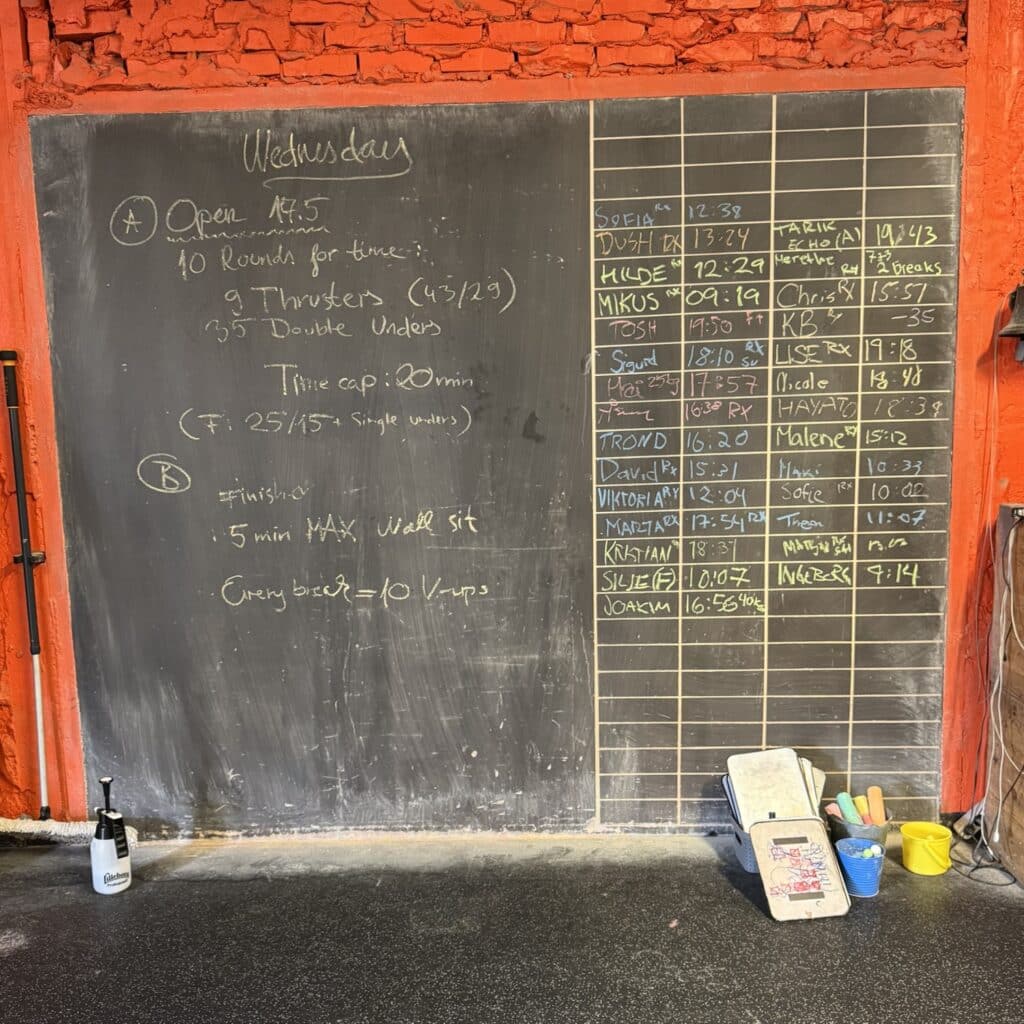 Wednesday
A Open 17.5
10 Rounds for time:
9 Thrusters (43/29)
35 Double Unders
Time cap: 20min
(F: 25/15 + Single unders)
B
Finisher
· 5 min MAX Wall sit
· Every break = 10 V-ups
SOFIA Rx 12:38
DUSH RX 13:24
HILDE Rx 12:29
MIKUS Rx 09:19
TOSH 19:50
Sigurd 18:10 RX
17:57
16:38 RX
TROND 16:20
David Rx 15:31
VIKTORIA RX 12:04
MARTA RX 17:54 RX
KRISTIAN 18:37
SILJE (F) 10:07
JOAKIM 16:56 40kg
TARIK
ECHO (A) 19:43
Merethe RX 2 breaks
Chris RX 15:51
KB -35
LISE RX 19:18
Nicole 18:48
HAYATO 18:38
Malene RX 15:12
Maxi 10:33
Sofie RX 10:02
Theon 11:07
INGEBERG 9:14